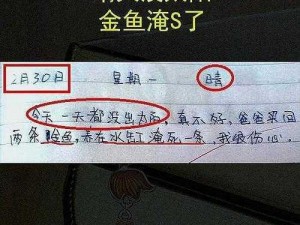 金鱼淹S了
2月30日 星期一 晴
今天一天都没出太阳，真不好，爸爸买回
两条鲸鱼，养在水缸淹死一条，我很伤心.